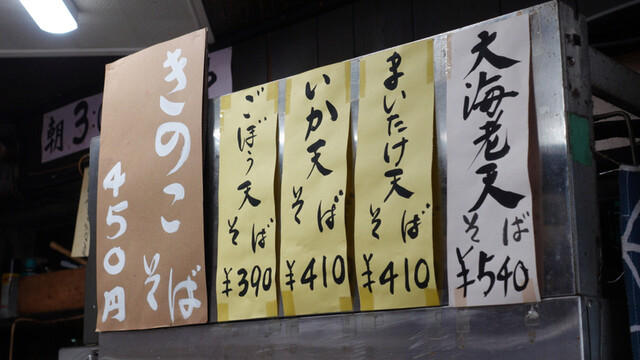 大海老天そば
¥540
まいたけ天そば
¥410
いか天そば
¥410
ごぼう天そば
¥390
きのこそば
450円
朝3: